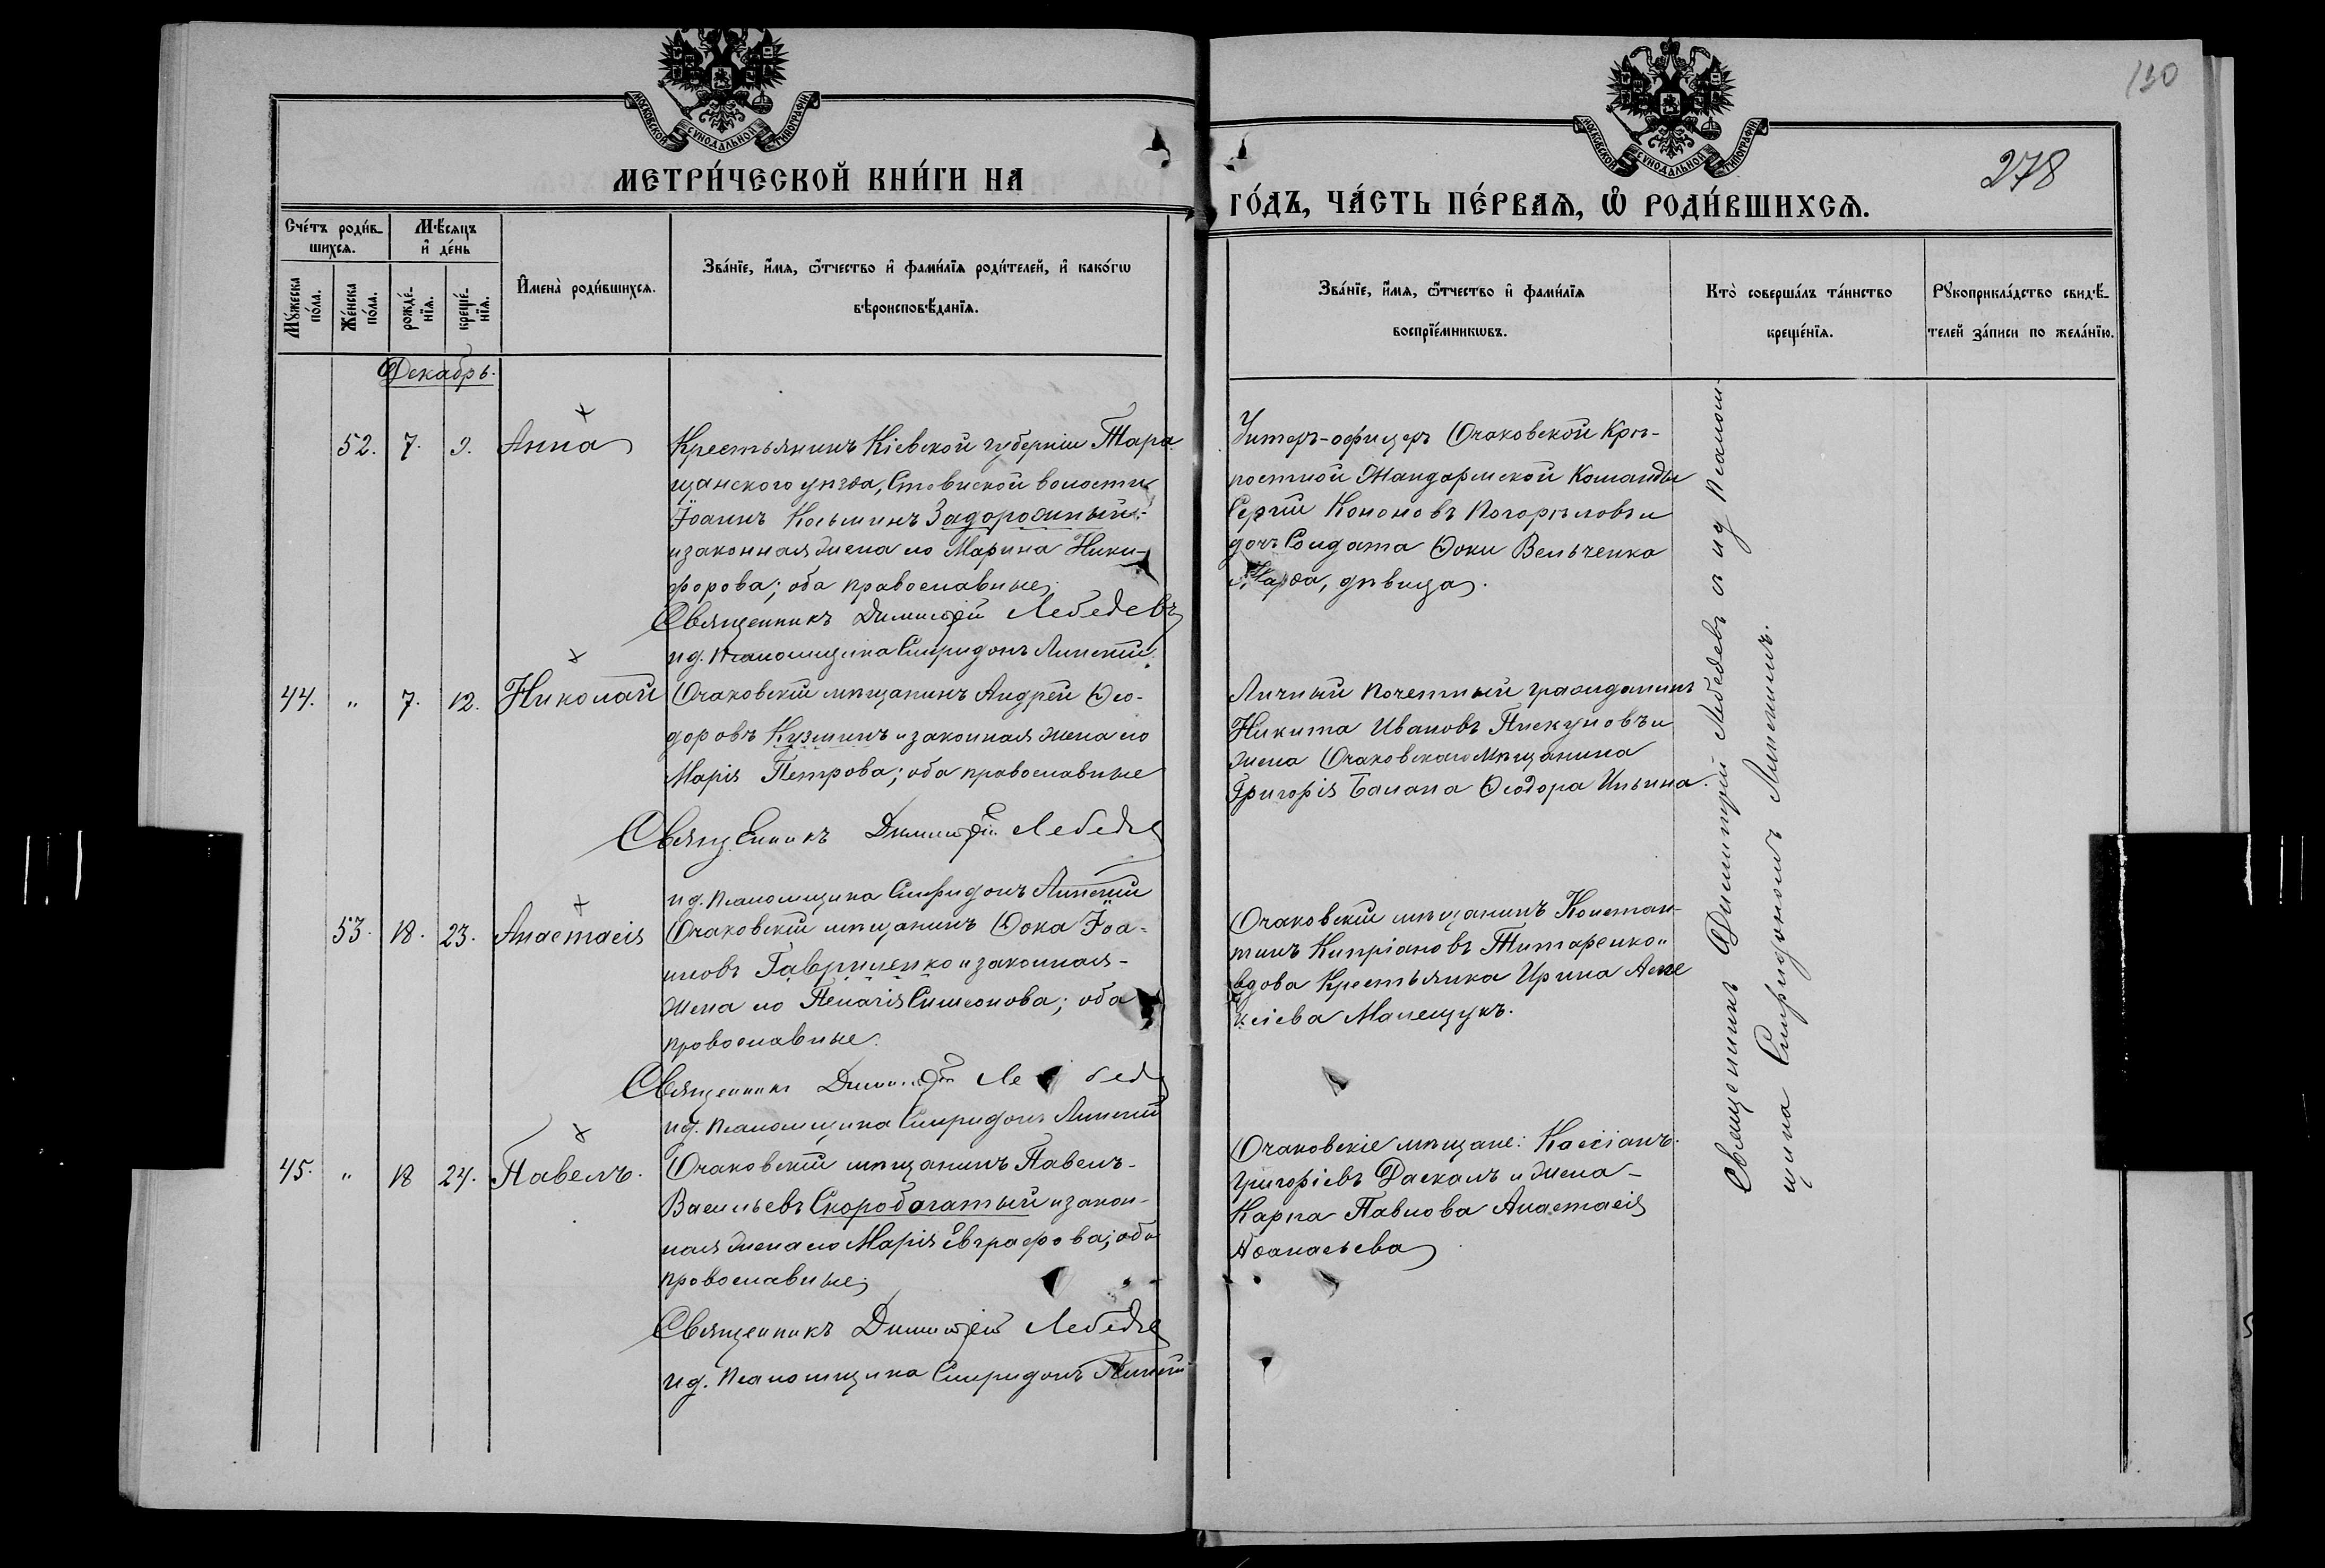 130
278
МОСКОВСКОЙ СѴНОДАЛЬНОЙ ТИПОГРАФІИ
МОСКОВСКОЙ СѴНОДАЛЬНОЙ ТИПОГРАФІИ
МЕТРИ́ЧЕСКОЙ КНИ́ГИ НА
ГО́ДЪ, ЧА́СТЬ ПЕ́РВАѦ, Ѽ РОДИ́ВШИХСѦ.
Сче́тъ роди́в-
шихсѧ.
Мѣ́сѧцъ
и҆ де́нь
Мꙋ́жеска
по́ла.
Же́нска
по́ла.
рожде́-
нїѧ.
креще́-
нїѧ.
И҆мена̀ роди́вшихсѧ.
Зва́нїе, и҆́мѧ, ѻ҆́тчество и҆ фами́лїѧ роди́телей, и҆ како́гѡ
вѣроисповѣ́данїѧ.
Зва́нїе, и҆́мѧ, ѻ҆́тчество и҆ фами́лїѧ
воспрїе́мникѡвъ.
Кто̀ соверша́лъ та́инство
креще́нїѧ.
Рꙋкоприкла́дство свидѣ́-
телей за́писи по жела́нїю.
Декабрь.
52. 7. 9. Анна
Крестьянинъ Кіевской губерніи Тара-
щанского уѣзда, Ставиской волости
Іоаннъ Косьминъ Задорожный
и законная жена его Марина Ники-
форова; оба православные
Священникъ Димитрій Лебедевъ
ид. псаломщика Спиридонъ Липскій
Унтеръ-офицеръ Очаковской Крѣ-
постной Жандармской Команды
Сергій Кононовъ Погорѣловъ и
дочь Солдата Ѳоки Вельченка
Марѳа, дѣвица.
44. „ 7. 12. Николай
Очаковскій мѣщанинъ Андрей Ѳео-
доровъ Кузминъ и законная жена его
Марія Петрова; оба православные
Священникъ Димитрій Лебедев
ид. псаломщика Спиридонъ Липскій
Личный почетный гражданинъ
Никита Ивановъ Пискуновъ и
жена Очаковскаго мѣщанина
Григорія Балана Ѳеодора Ильина.
53. 18. 23. Анастасія
Очаковскій мѣщанинъ Ѳока Іоа-
нновъ Гавриленко и законная
жена его Пелагія Симеонова; оба
православные.
Священникъ Димитрій Лебедев
ид. псаломщика Спиридонъ Липскій
Очаковскій мѣщанинъ Констан-
тинъ Кипріановъ Титаренко и
вдова Крестьянка Ирина Алек
сіева Манещукъ.
45. „ 18 24. Павелъ.
Очаковскій мѣщанинъ Павелъ
Васильевъ Скоробогатый и закон-
ная жена его Марія Евграфова; оба
православные
Священникъ Димитрій Лебедев
ид. псаломщика Спиридонъ Липскій
Очаковскіе мѣщане: Касіанъ
Григоріевъ Даскалъ и жена
Карпа Павлова Анастасія
Аѳанасьева
Священникъ Димитрій Лебедевъ съ ид псалом-
щика Спиридономъ Липскимъ.